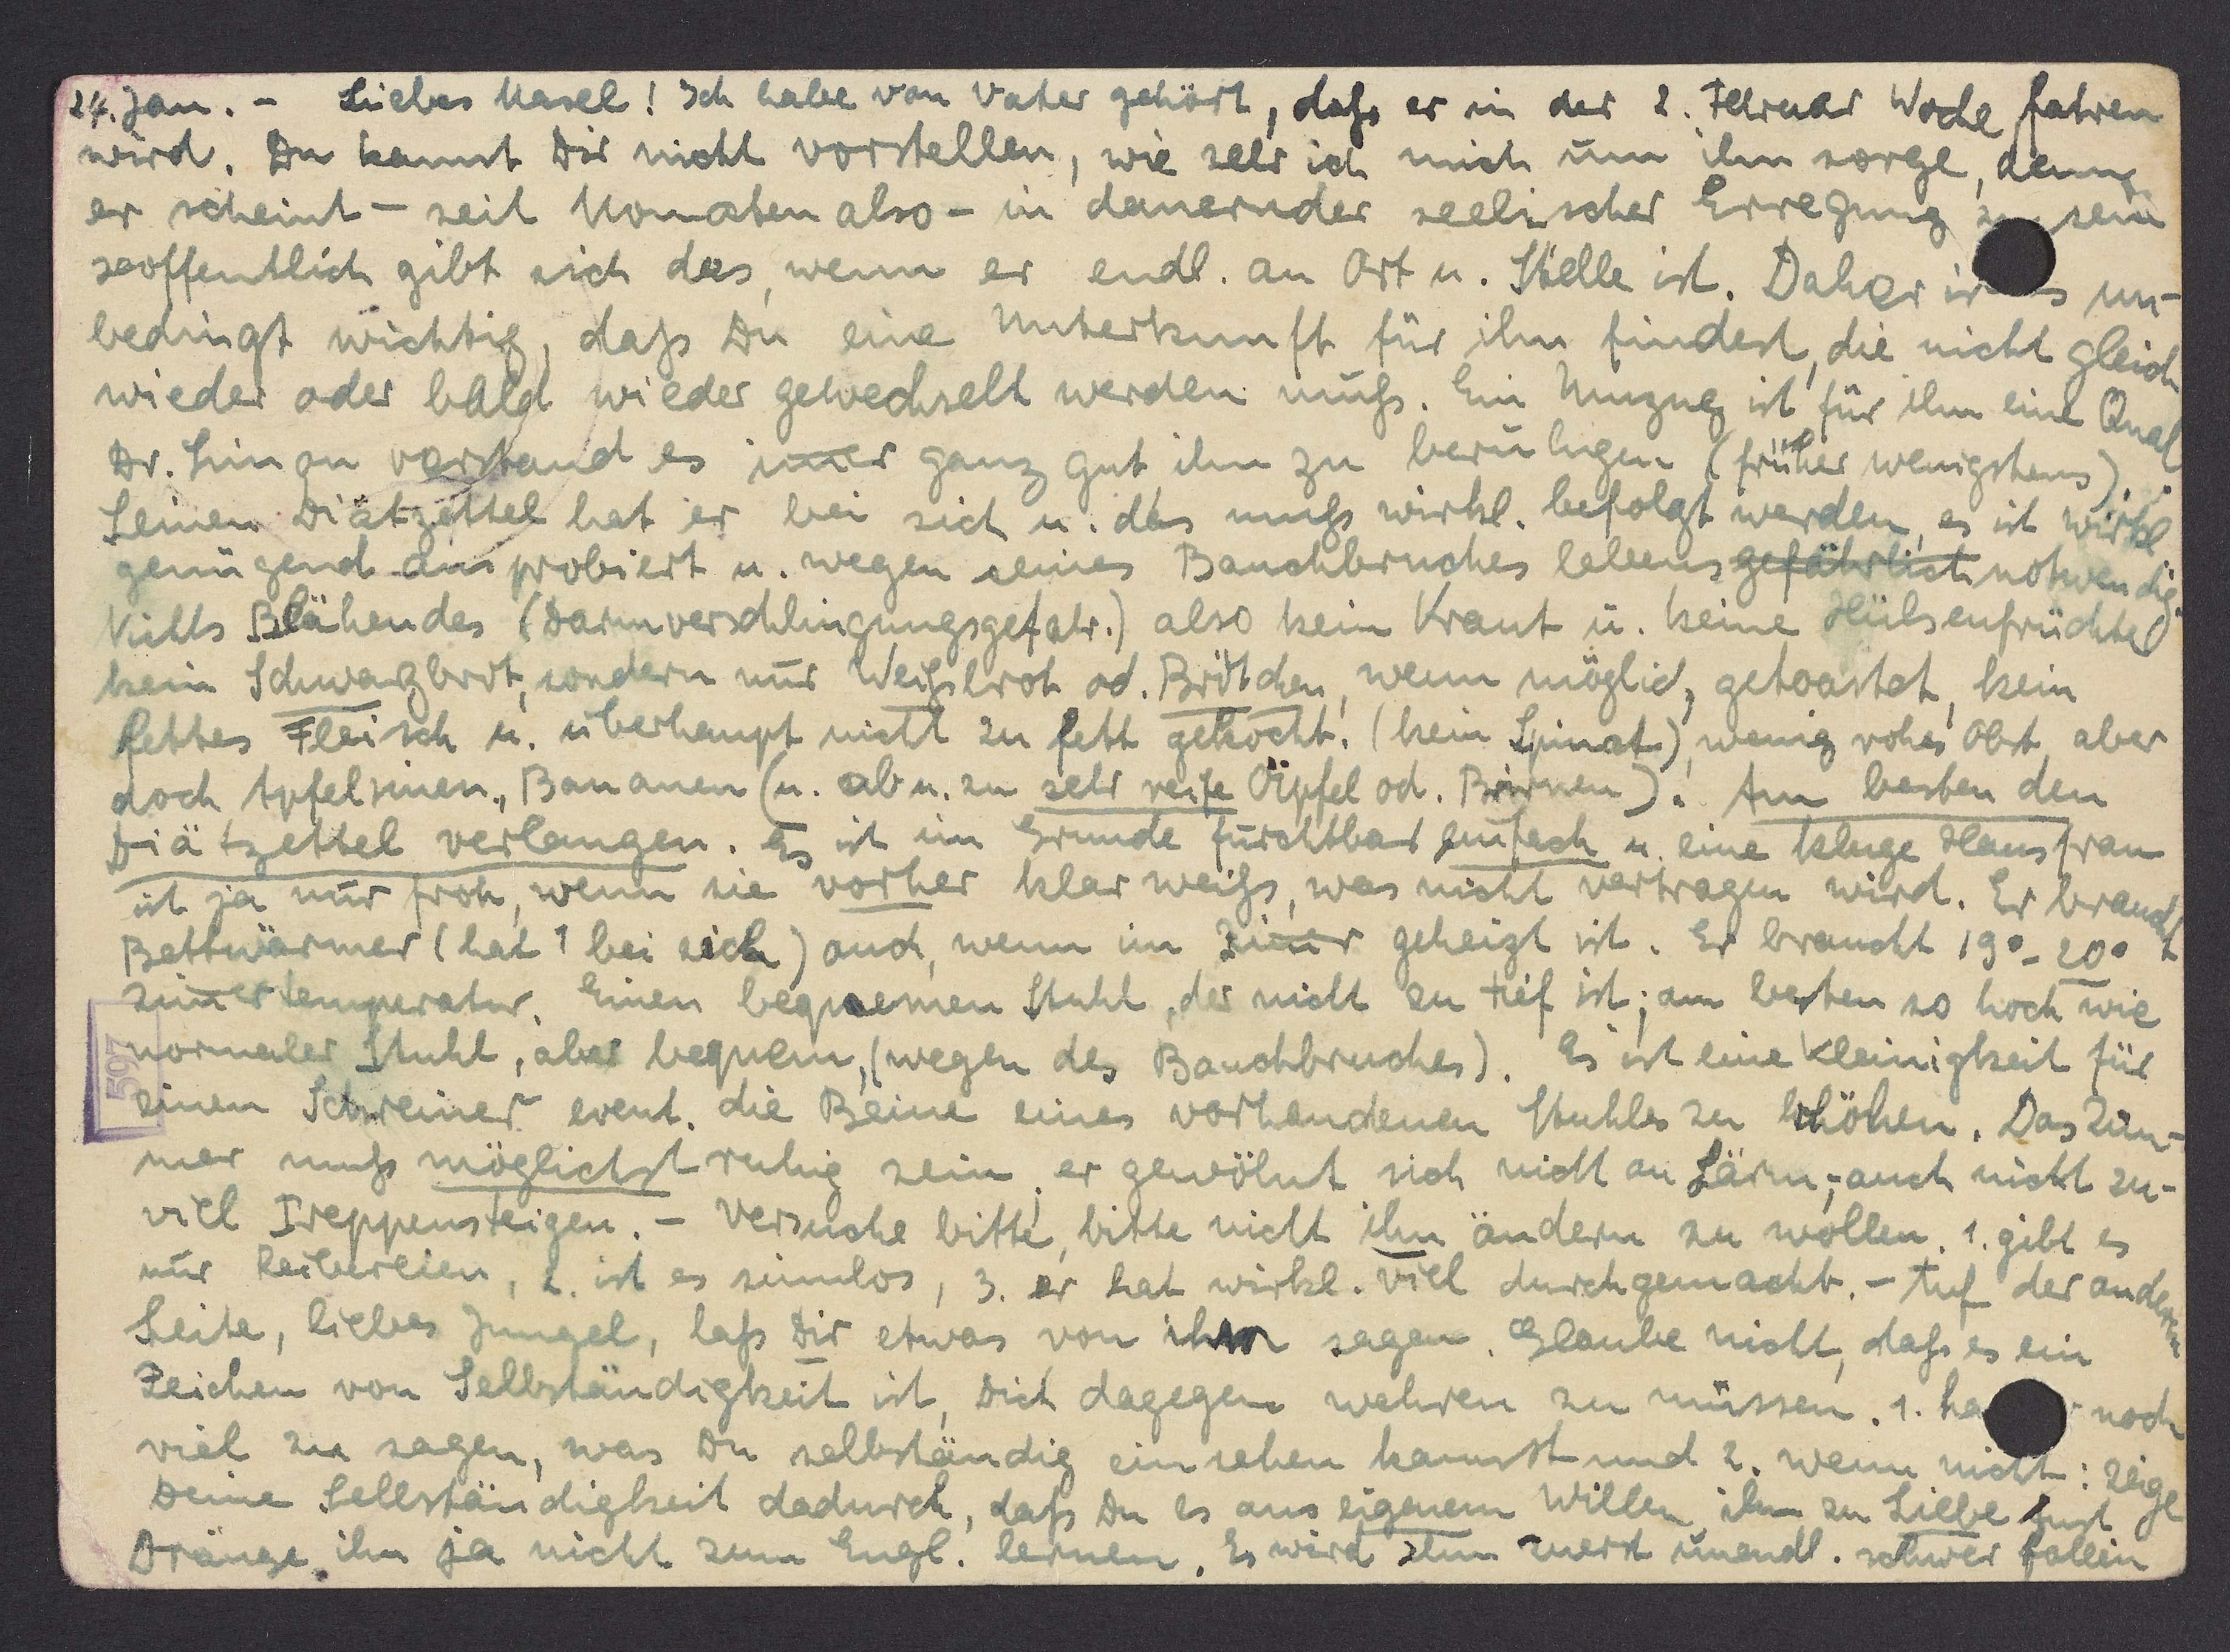 24. Jan. - Liebes Masel! Ich habe von Vater gehört, dass er in der 2. Februar Woche fahren
wird. Du kannst Dir nicht vorstellen, wie sehr ich mich um ihn sorge, denn
er scheint - seit Monaten also - in dauernder seelischer Erregung zu sein
hoffentlich gibt sich das, wenn er endl. an Ort u. Stelle ist. Daher ist es un-
bedingt wichtig, dass Du eine Unterkunft für ihn findest, die nicht gleich
wieder oder bald wieder gewechselt werden muss. Ein Umzug ist für ihn eine Qual
Dr. verstand es im̅er ganz gut ihn zu beruhigen (früher wenigstens).
Seinen Diätzettel hat er bei sich u. das muss wirkl. befolgt werden, es ist wirkl.
genügend ausprobiert u. wegen seines Bauchbruches lebensgefährlich notwendig.
Nichts Blähendes (Darmverschlingungsgefahr.) also kein Kraut u. keine Hülsenfrüchte
kein Schwarzbrot, sondern nur Weissbrot od. Brötchen, wenn möglich, getoastet, kein
fettes Fleisch u. überhaupt nicht zu fett gekocht. (kein Spinat), wenig rohes Obst aber
doch Apfelsinen, Bananen (u. ab u. zu sehr reife Äpfel od. Birnen). Am besten den
Diätzettel verlangen. Es ist im Grunde furchtbar einfach u. eine kluge Hausfrau
ist ja nur froh, wenn sie vorher klar weiss, was nicht vertragen wird. Er braucht
Bettwärmer (hat 1 bei sich) auch, wenn im Zim̅er geheizt ist. Er braucht 19° - 20°
Zim̅ertemperatur. Einen bequemen Stuhl, der nicht zu tief ist; am besten so hoch wie
normaler Stuhl, aber bequem, (wegen des Bauchbruches). Es ist eine Kleinigkeit für
597
einen Schreiner event. die Beine eines vorhandenen Stuhles zu erhöhen. Das Zim-
mer muss möglichst ruhig sein, er gewöhnt sich nicht an Lärm; auch nicht zu-
viel Treppensteigen. - Versuche bitte, bitte nicht ihn ändern zu wollen. 1. gibt es
nur Reibereien, 2. ist es sinnlos, 3. er hat wirkl. viel durchgemacht. - Auf der anderen
Seite, liebes Jungel, lass Dir etwas von ihm sagen. Glaube nicht, dass es ein
Zeichen von Selbständigkeit ist, Dich dagegen wehren zu müssen. 1. hat er noch
viel zu sagen, was Du selbständig einsehen kannst und 2. wenn nicht: zeige
Deine Selbständigkeit dadurch, dass Du es aus eigenem Willen ihm zu Liebe tust
Dränge ihn ja nicht zum Engl. lernen. Es wird ihm zuerst unendl. schwer fallen